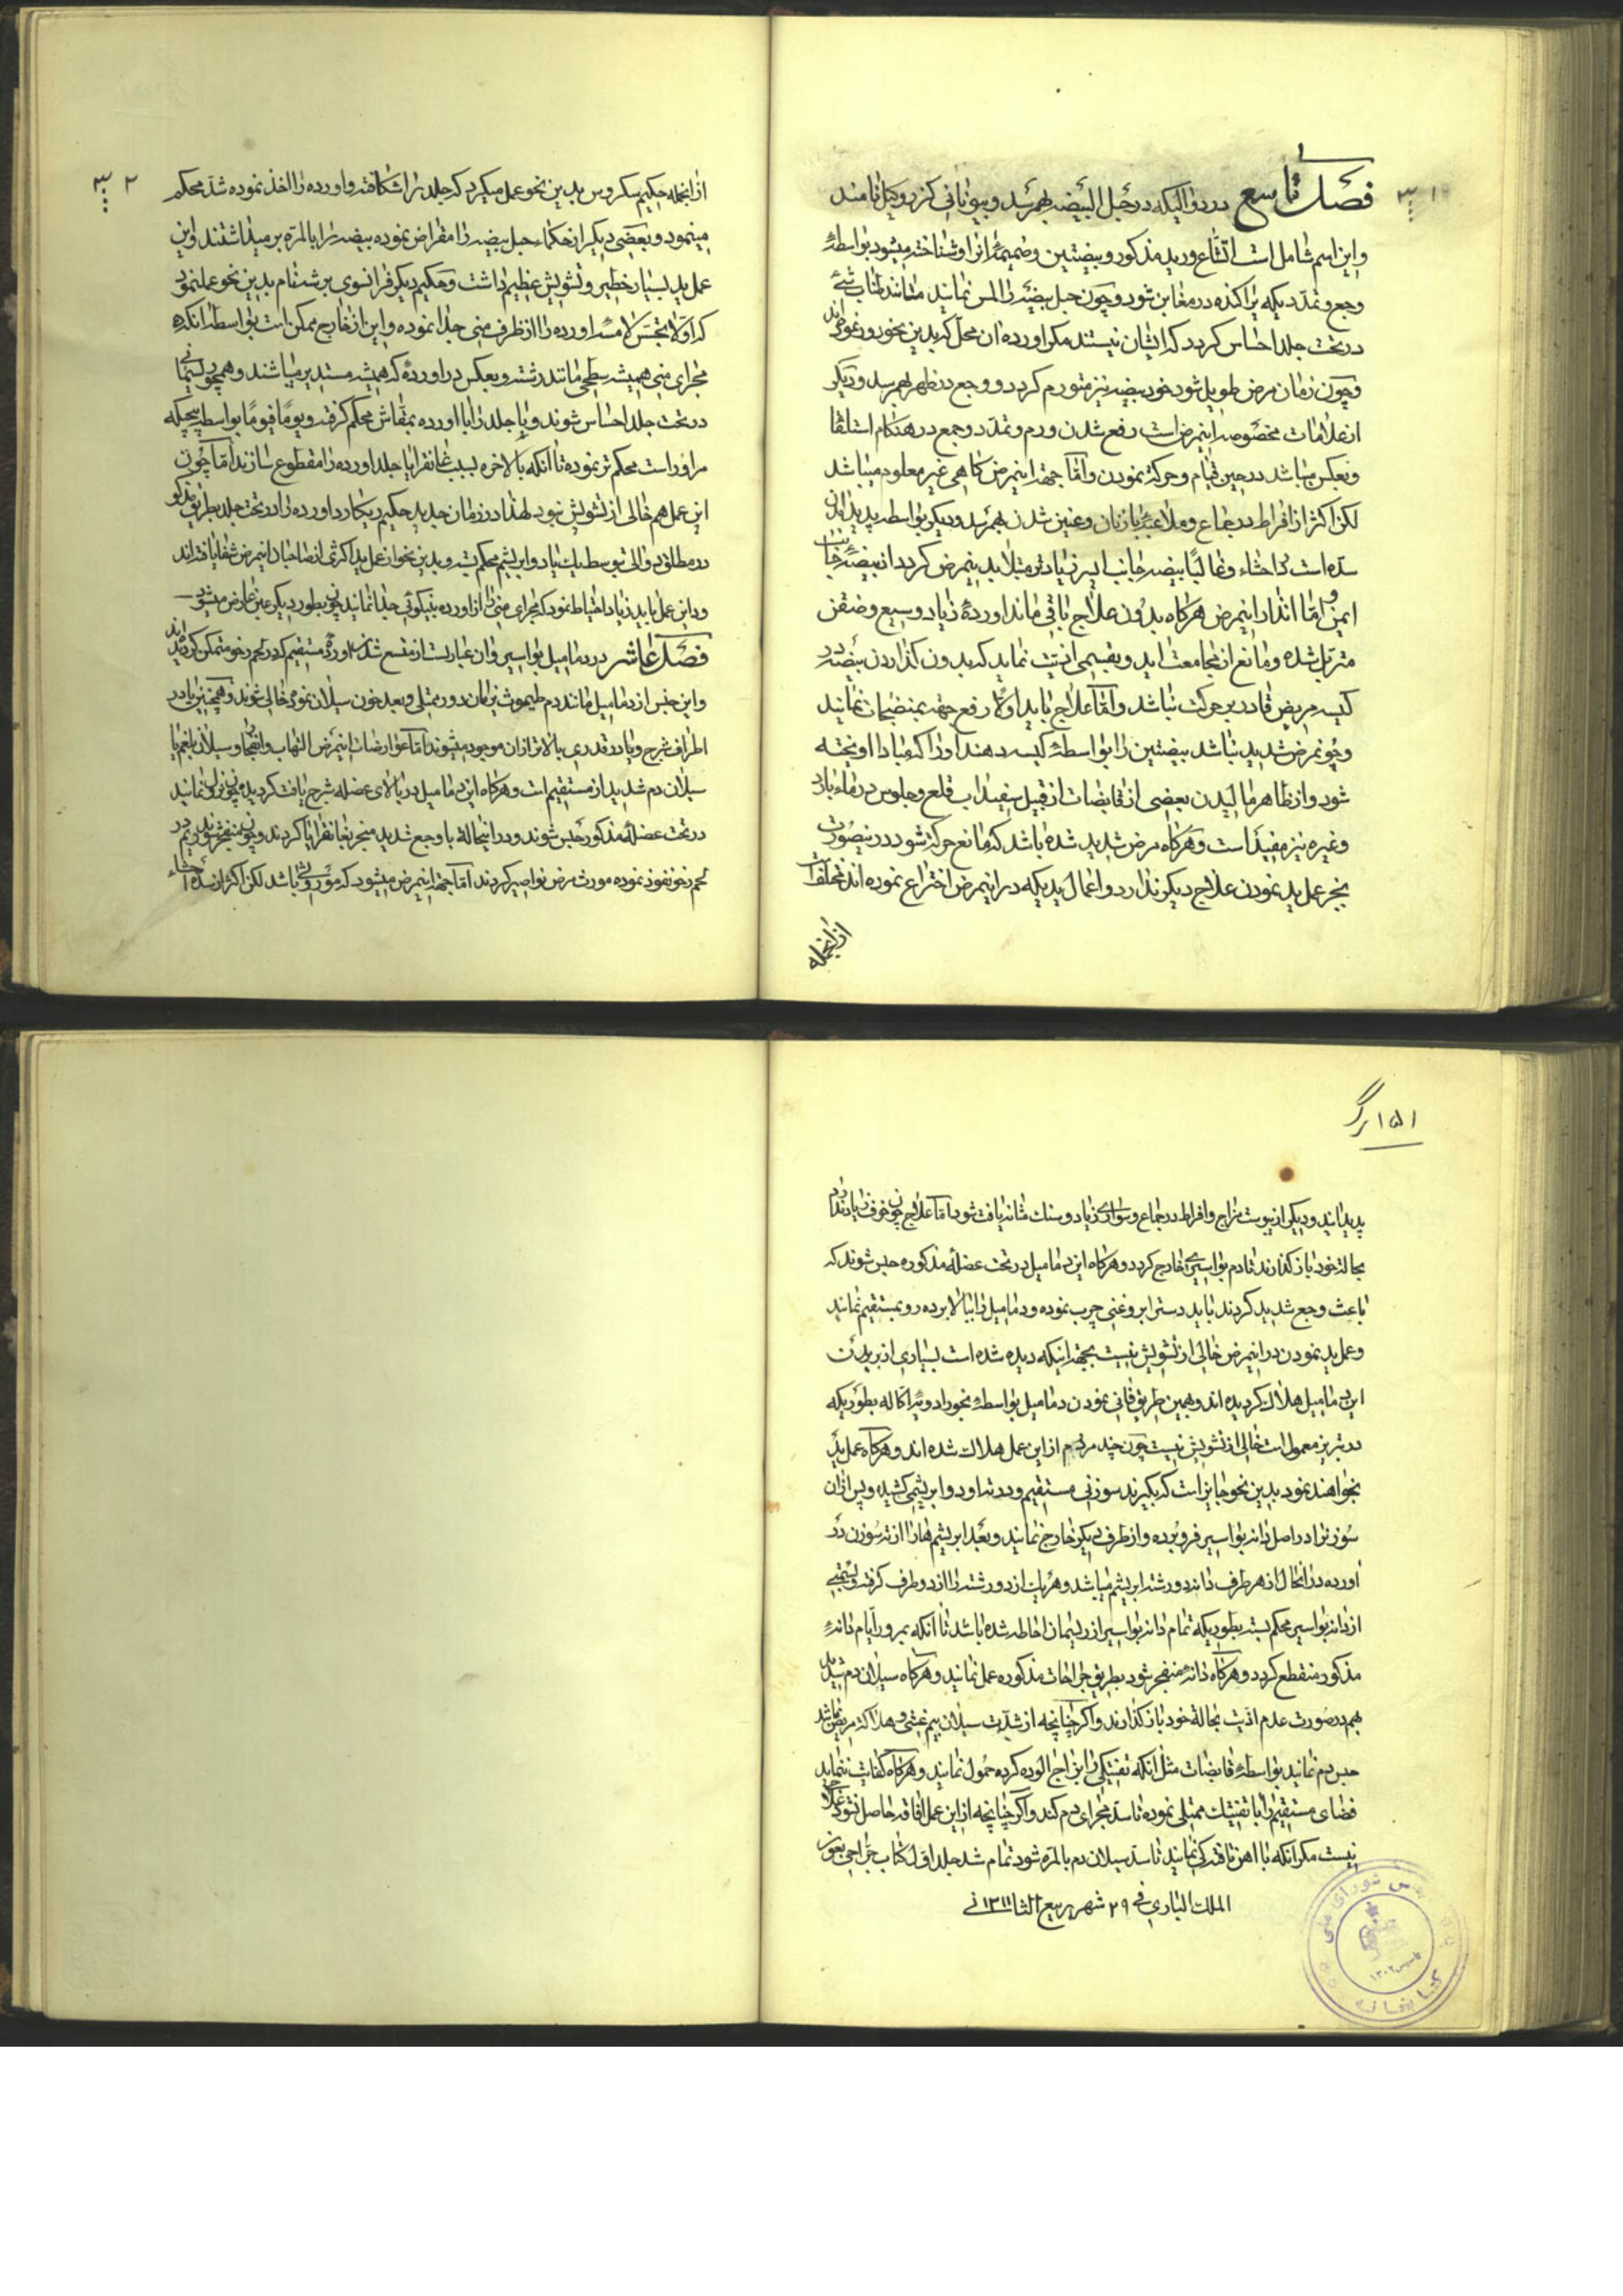 ۳۰۱
فصل تاسع در دوالیکه در حبل البیضه بهم رسد و بیونانی کزروکیل نامند
و این اسم شامل است اتساع ورید مذکور و بیضتین و ضمیمهٔ انرا و شناخته میشود بواسطهٔ
وجع و تمدّدیکه پراکنده در مغابن شود و چون حبل بیضه را لمس نمایند مثانند طناب شیء
در تحت جلد احساس گردد که ایشان نیستند مگر اورده ان محل که بدین نحو ورم نموده‌اند
و چون زمان مرض طویل شود خود بیضه نیز متورم گردد و وجع در ظهر بهم رسد و دیگر
از علامات مخصوصه اینمرض است رفع شدن ورم و تمدّد و وجع در هنکام استلقا
و بعکس میباشد در حین قیام و حرکة نمودن و امّا جهة اینمرض کاهی غیر معلوم میباشد
لکن اکثر از افراط در جماع و ملاعبة با زنان و عنین شدن بهم رسد و دیگر بواسطه پدید امدن
سدّه است در احشاء و غالبًا بیضه جانب ایسر زیادتر مبتلا بدینمرض کردد از بیضهٔ جانب
ایمن و امّا انذار اینمرض هرکاه بدون علاج باقی ماند اوردهٔ زیاد وسیع و ضفن
مترتل شده و مانع از مجامعت اید و بقسمی اذیت نماید که بدون گذاردن بیضه در
کیسه مریض قادر بر حرکت نباشد و امّا علاج باید اولًا رفع جهة بمنضجات نمایند
و چون مرض شدید نباشد بیضتین را بواسطهٔ کیسه دهند او را که مبادا اویخته
شود و از ظاهر مالیدن بعضی از قابضات از قبیل سفیداب قلع و جلوس در ماء بارد
و غیره نیز مفید است و هرکاه مرض شدید شده باشد که مانع حرکة شود در ینصورت
بجز عمل ید نمودن علاج دیگر ندارد و اعمال یدیکه در اینمرض اختراع نموده اند مختلف است
از انجمله
۳۰۲
از انجمله حکیم سکروس بدین نحو عمل میکرد که جلد را شکافته و اورده را اخذ نموده شد محکم
مینمود و بعضی دیگر از حکماء حبل بیضه را مقراض نموده بیضه را بالمره بر میداشتند و این
عمل ید بسیار خطیر و تشویش عظیم داشت و حکیم دیگر فرانسوی برشت نام بدین نحو عمل نمود
که اوّلا بجسّ لامسه اورده را از ظرف منی جدا نموده و این از خارج ممکن است بواسطهٔ انکه
مجرای منی همیشه سطحی مانند رشته و بعکس در اورده که همیشه مستدیر میباشند و همچو ریسمانی
در تحت جلد احساس شوند و با جلد را با اورده بمقاش محکم کرفته و یومًا فیومًا بواسطه پیچیکه
مر او راست محکم تر نموده تا انکه بالاخره بسبب غانقرایا جلد اورده را مقطوع سازند امّا چون
این عمل هم خالی از تشویش نبود لهذا در زمان جدید حکیم ریکارد اورده را در تحت جلد بطریق مذکور
در مطلق دوالی توسط یک یا دو ابریشم محکم بسته و بدین نحو از عمل ید اکثری از صاحبان اینمرض شفا یافته‌اند
و در این عمل باید زیاد احتیاط نمود که مجرای منی را از اورده بنیکوئی جدا نمایند چون بطور دیگر عنن عارض میشود
فصل عاشر در دمامیل بواسیر و ان عبارتست از متسع شدن اوردهٔ مستقیم که در لحم رخو متمکن گردیده‌اند
و این جنس از دمامیل مانند دم طموث زمان دور ممتلی و بعد خون سیلان نموده خالی شوند و همچنین یا در
اطراف شرج و یا در قدری بالاتر از ان موجود میشوند امّا عوارضات اینمرض التهاب و انفجار و سیلان بلغم یا
سیلان دم شدید از مستقیم است و هرکاه این دمامیل در بالای عضلهٔ شرج یافت گردیده چون نزول نمایند
در تحت عضلهٔ مذکور حبس شوند و در اینحالة با وجع شدید منجر بغانقرایا گردند و چون منفجر شوند ریم در
لحم رخو نفوذ نموده مورث مرض نواصیر گردند امّا جهة اینمرض میشود که موروثی باشد لکن اکثر از سدهٔ احشاء
۱۵۱ برگ
پدید ایند و دیگر از یبوست مزاج و افراط در جماع و سواری زیاد و سنک مثانه یافت شود امّا علاج چون خوف زیاد ندارد
بحالة خود باز گذارند تا دم بواسیری خارج گردد و هرکاه این دمامیل در تحت عضلهٔ مذکوره حبس شوند که
باعث وجع شدید گردند باید دست را بروغنی چرب نموده و دمامیل را ببالا برده رو بمستقیم نمایند
و عمل ید نمودن در اینمرض خالی از تشویش نیست بجهة اینکه دیده شده است بسیاری از بریدن
این دمامیل هلاک گردیده اند و همین طریق فانی نمودن دمامیل بواسطهٔ بخور ادویهٔ اکاله بطوریکه
در تبریز معمولست خالی از تشویش نیست چون چند مردم از این عمل هلاک شده اند و هرکاه عمل ید
بخواهند نمود بدین نحو جایز است که بگیرند سوزنی مستقیم و در ته او دو ابریشمی کشیده و پس ازان
سوزنرا در اصل دانه بواسیر فرو برده و از طرف دیگر خارج نمایند و بعد ابریشم هارا از ته سوزن در
اورده در انحال از هر طرف دانه دو رشته ابریشم میباشد و هر یک از دو رشته را از دو طرف گرفته و بقسمی
از دانه بواسیر محکم بسته بطوریکه تمام دانه بواسیر از ریسمان احاطه شده باشد تا انکه بمرور ایام دانهٔ
مذکور منقطع گردد و هرکاه دانهٔ منفجر شود بطریق جراحات مذکوره عمل نمایند و هرکاه سیلان دم شدید
بهم در صورت عدم اذیت بحالة خود باز گذارند و اکر چنانچه از شدّت سیلان بیم غشی و هلاکة مریض باشد
حبس دم نمایند بواسطهٔ قابضات مثل انکه تفتیکی را بزاج الوده کرده حمول نمایند و هرکاه کفایت ننماید
فضای مستقیم را با تفتیک ممتلی نموده تا سدّ مجرای دم کند و اکر چنانچه از این عمل افاقه حاصل نشود علاجی
نیست مگر انکه با اهن تافته کی نمایند تا سدّ سیلان دم بالمره شود تمام شد جلد اول کتاب جراحی بعون
الملک الباری فی ۲۹ شهر ربیع الثانی ۱۳۱۱
مجلس شورای ملی
تاسیس ۱۳۰۲
کتابخانه